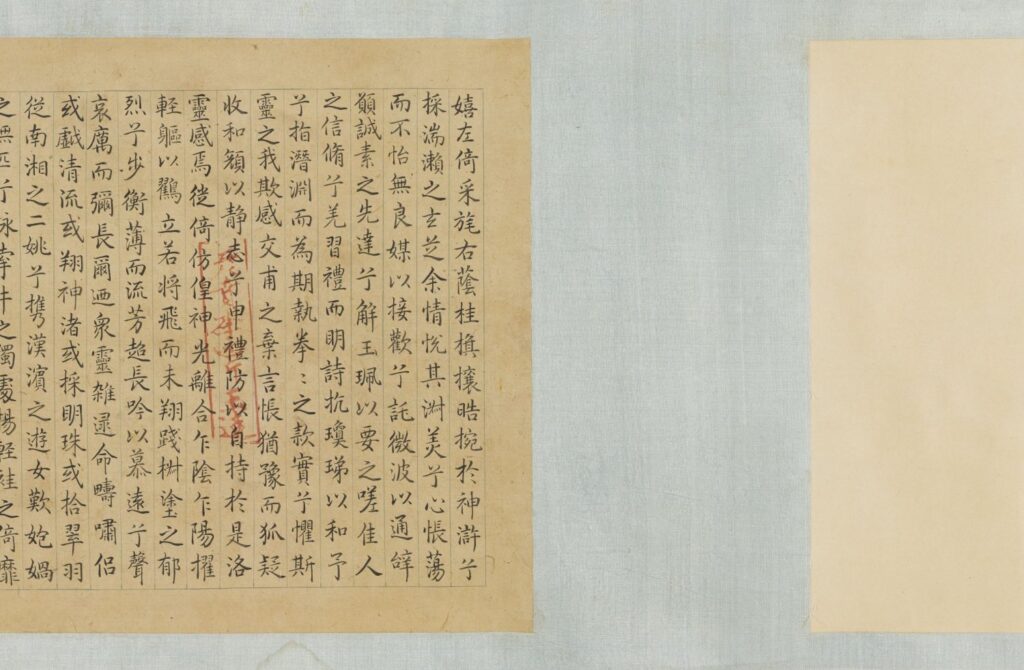 嬉左倚采旄右蔭桂旗攘晧捥於神滸兮
採湍瀨之玄芝余情恱其淑美兮心悵蕩
而不怡無良媒以接歡兮託微波以通辝
願誠素之先達兮解玉珮以要之嗟佳人
之信脩兮羌習禮而明詩抗瓊珶以和予
兮指潛淵而為期執拳〻之款實兮懼斯
靈之我欺感交甫之棄言悵猶豫而狐疑
收和顏以静志兮申禮防以自持於是洛
靈感焉徙倚仿偟神光離合乍陰乍陽擢
輕軀以鸖立若將飛而未翔踐椒塗之郁
烈兮步衡薄而流芳超長吟以慕遠兮聲
哀厲而彌長爾迺衆靈雜遝命疇嘯侶
或戲清流或翔神渚或採明珠或拾翠羽
從南湘之二姚兮携漢濱之遊女歎匏媧
之無匹兮詠牽牛之獨處揚輕袿之倚靡